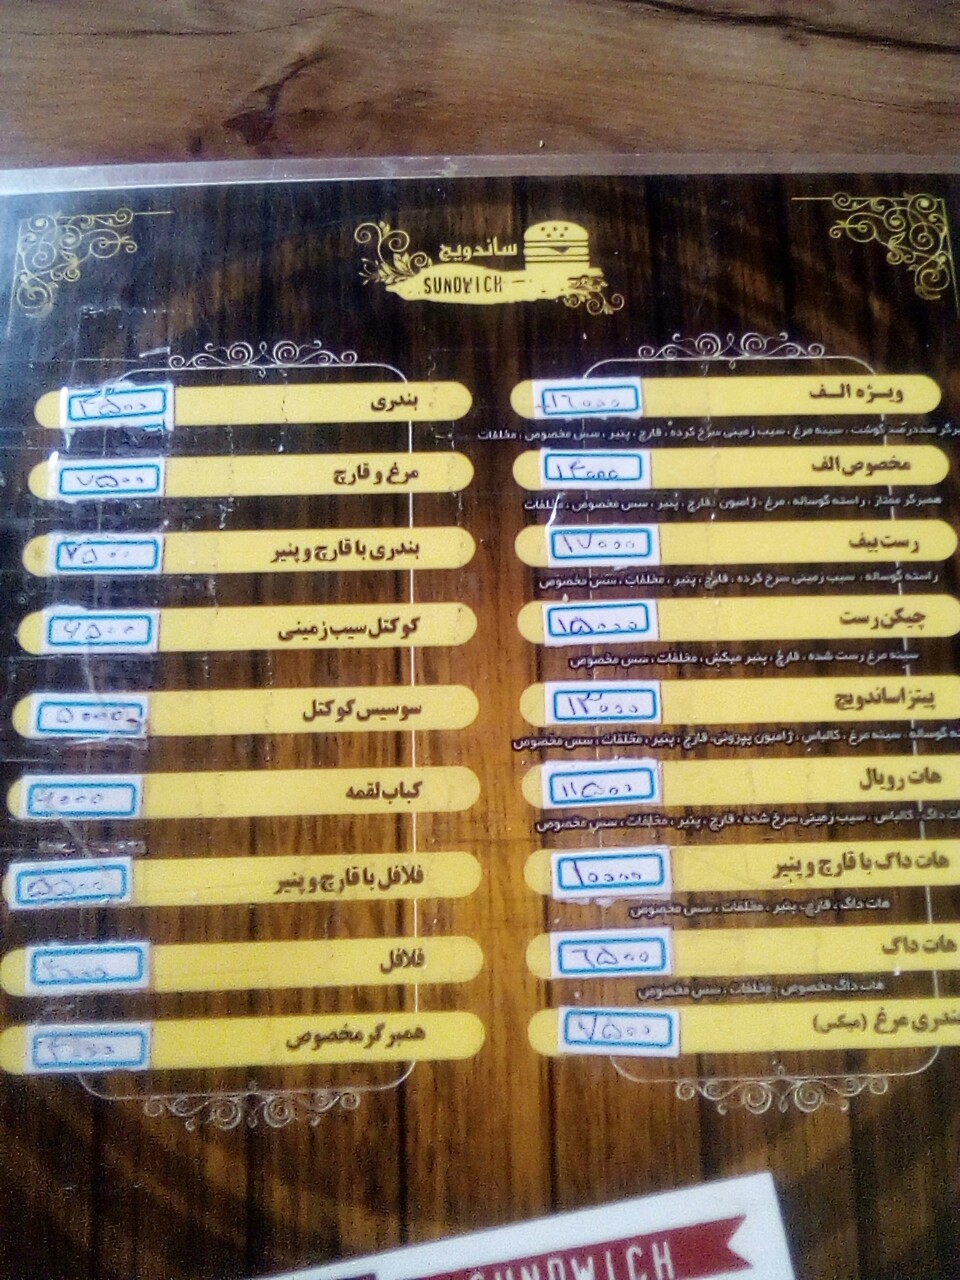 ساندویچ
SUNDWICH
ویژه الف ۱۶۰۰۰
صددرصد گوشت ، سینه مرغ ، سیب زمینی سرخ کرده ، قارچ ، پنیر ، سس مخصوص ، مخلفات
مخصوص الف
همبرگر ممتاز ، راسته گوساله ، مرغ ، ژامبون ، قارچ ، پنیر ، سس مخصوص ، مخلفات
رست بیف ۱۷۰۰۰
راسته گوساله ، سیب زمینی سرخ کرده ، قارچ ، پنیر ، مخلفات ، سس مخصوص
چیکن رست ۱۵۰۰۰
سینه مرغ رست شده ، قارچ ، پنیر میکس ، مخلفات ، سس مخصوص
پیتزا ساندویچ ۱۳۰۰۰
گوساله ، سینه مرغ ، کالباس ، ژامبون پپرونی ، قارچ ، پنیر ، مخلفات ، سس مخصوص
هات رویال ۱۱۵۰۰
داگ ، کالباس ، سیب زمینی سرخ شده ، قارچ ، پنیر ، مخلفات ، سس مخصوص
هات داگ با قارچ و پنیر ۱۰۰۰۰
هات داگ ، قارچ ، پنیر ، مخلفات ، سس مخصوص
هات داگ ۶۵۰۰
هات داگ مخصوص ، مخلفات ، سس مخصوص
مرغ (میکس) ۷۵۰۰
بندری
مرغ و قارچ ۷۵۰۰
بندری با قارچ و پنیر
کوکتل سیب زمینی ۶۵۰۰
سوسیس کوکتل ۵۰۰۰
کباب لقمه
فلافل با قارچ و پنیر ۵۵۰۰
فلافل
همبرگر مخصوص
SUNDWICH